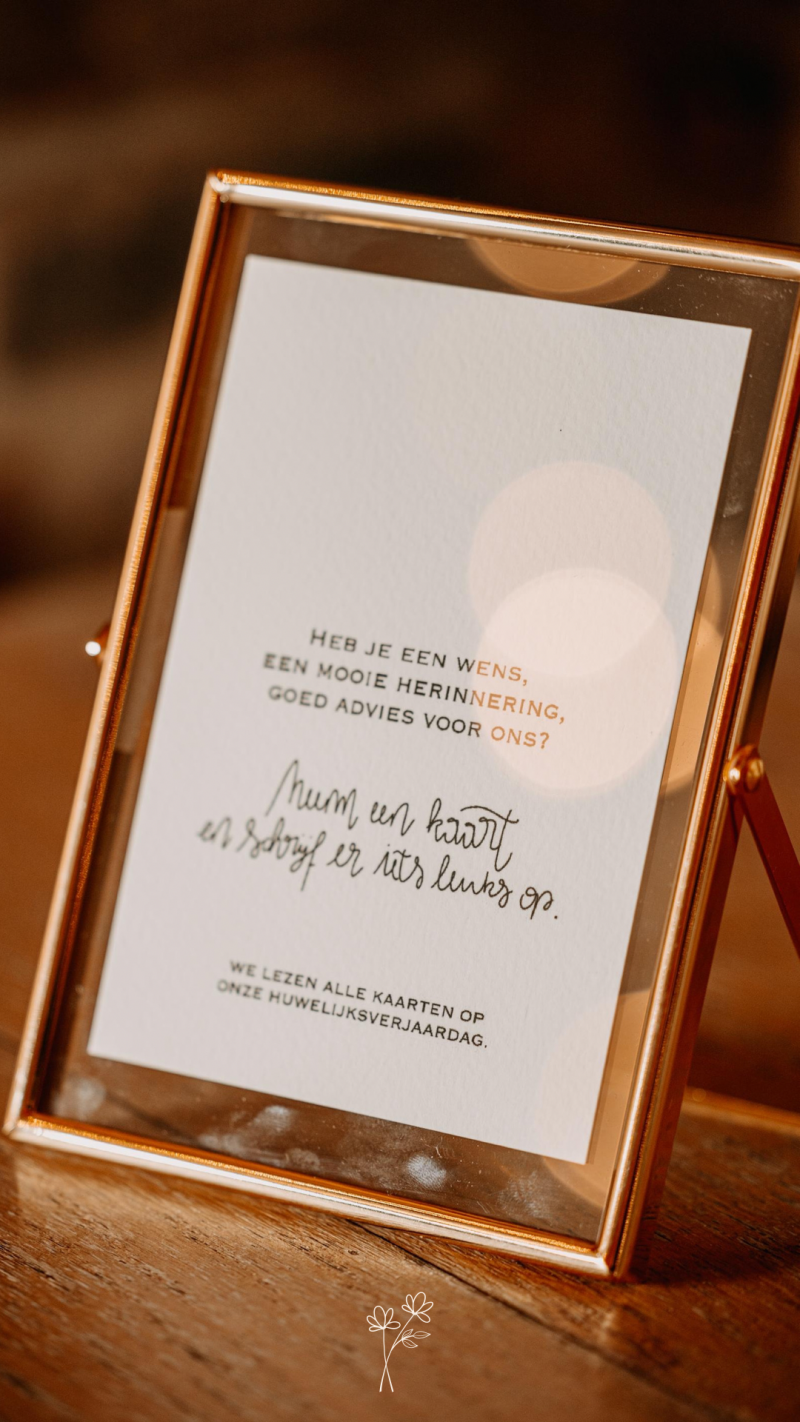 HEB JE EEN WENS,
EEN MOOIE HERINNERING,
GOED ADVIES VOOR ONS?
Neem een kaart
en schrijf er iets leuks op.
WE LEZEN ALLE KAARTEN OP
ONZE HUWELIJKSVERJAARDAG.